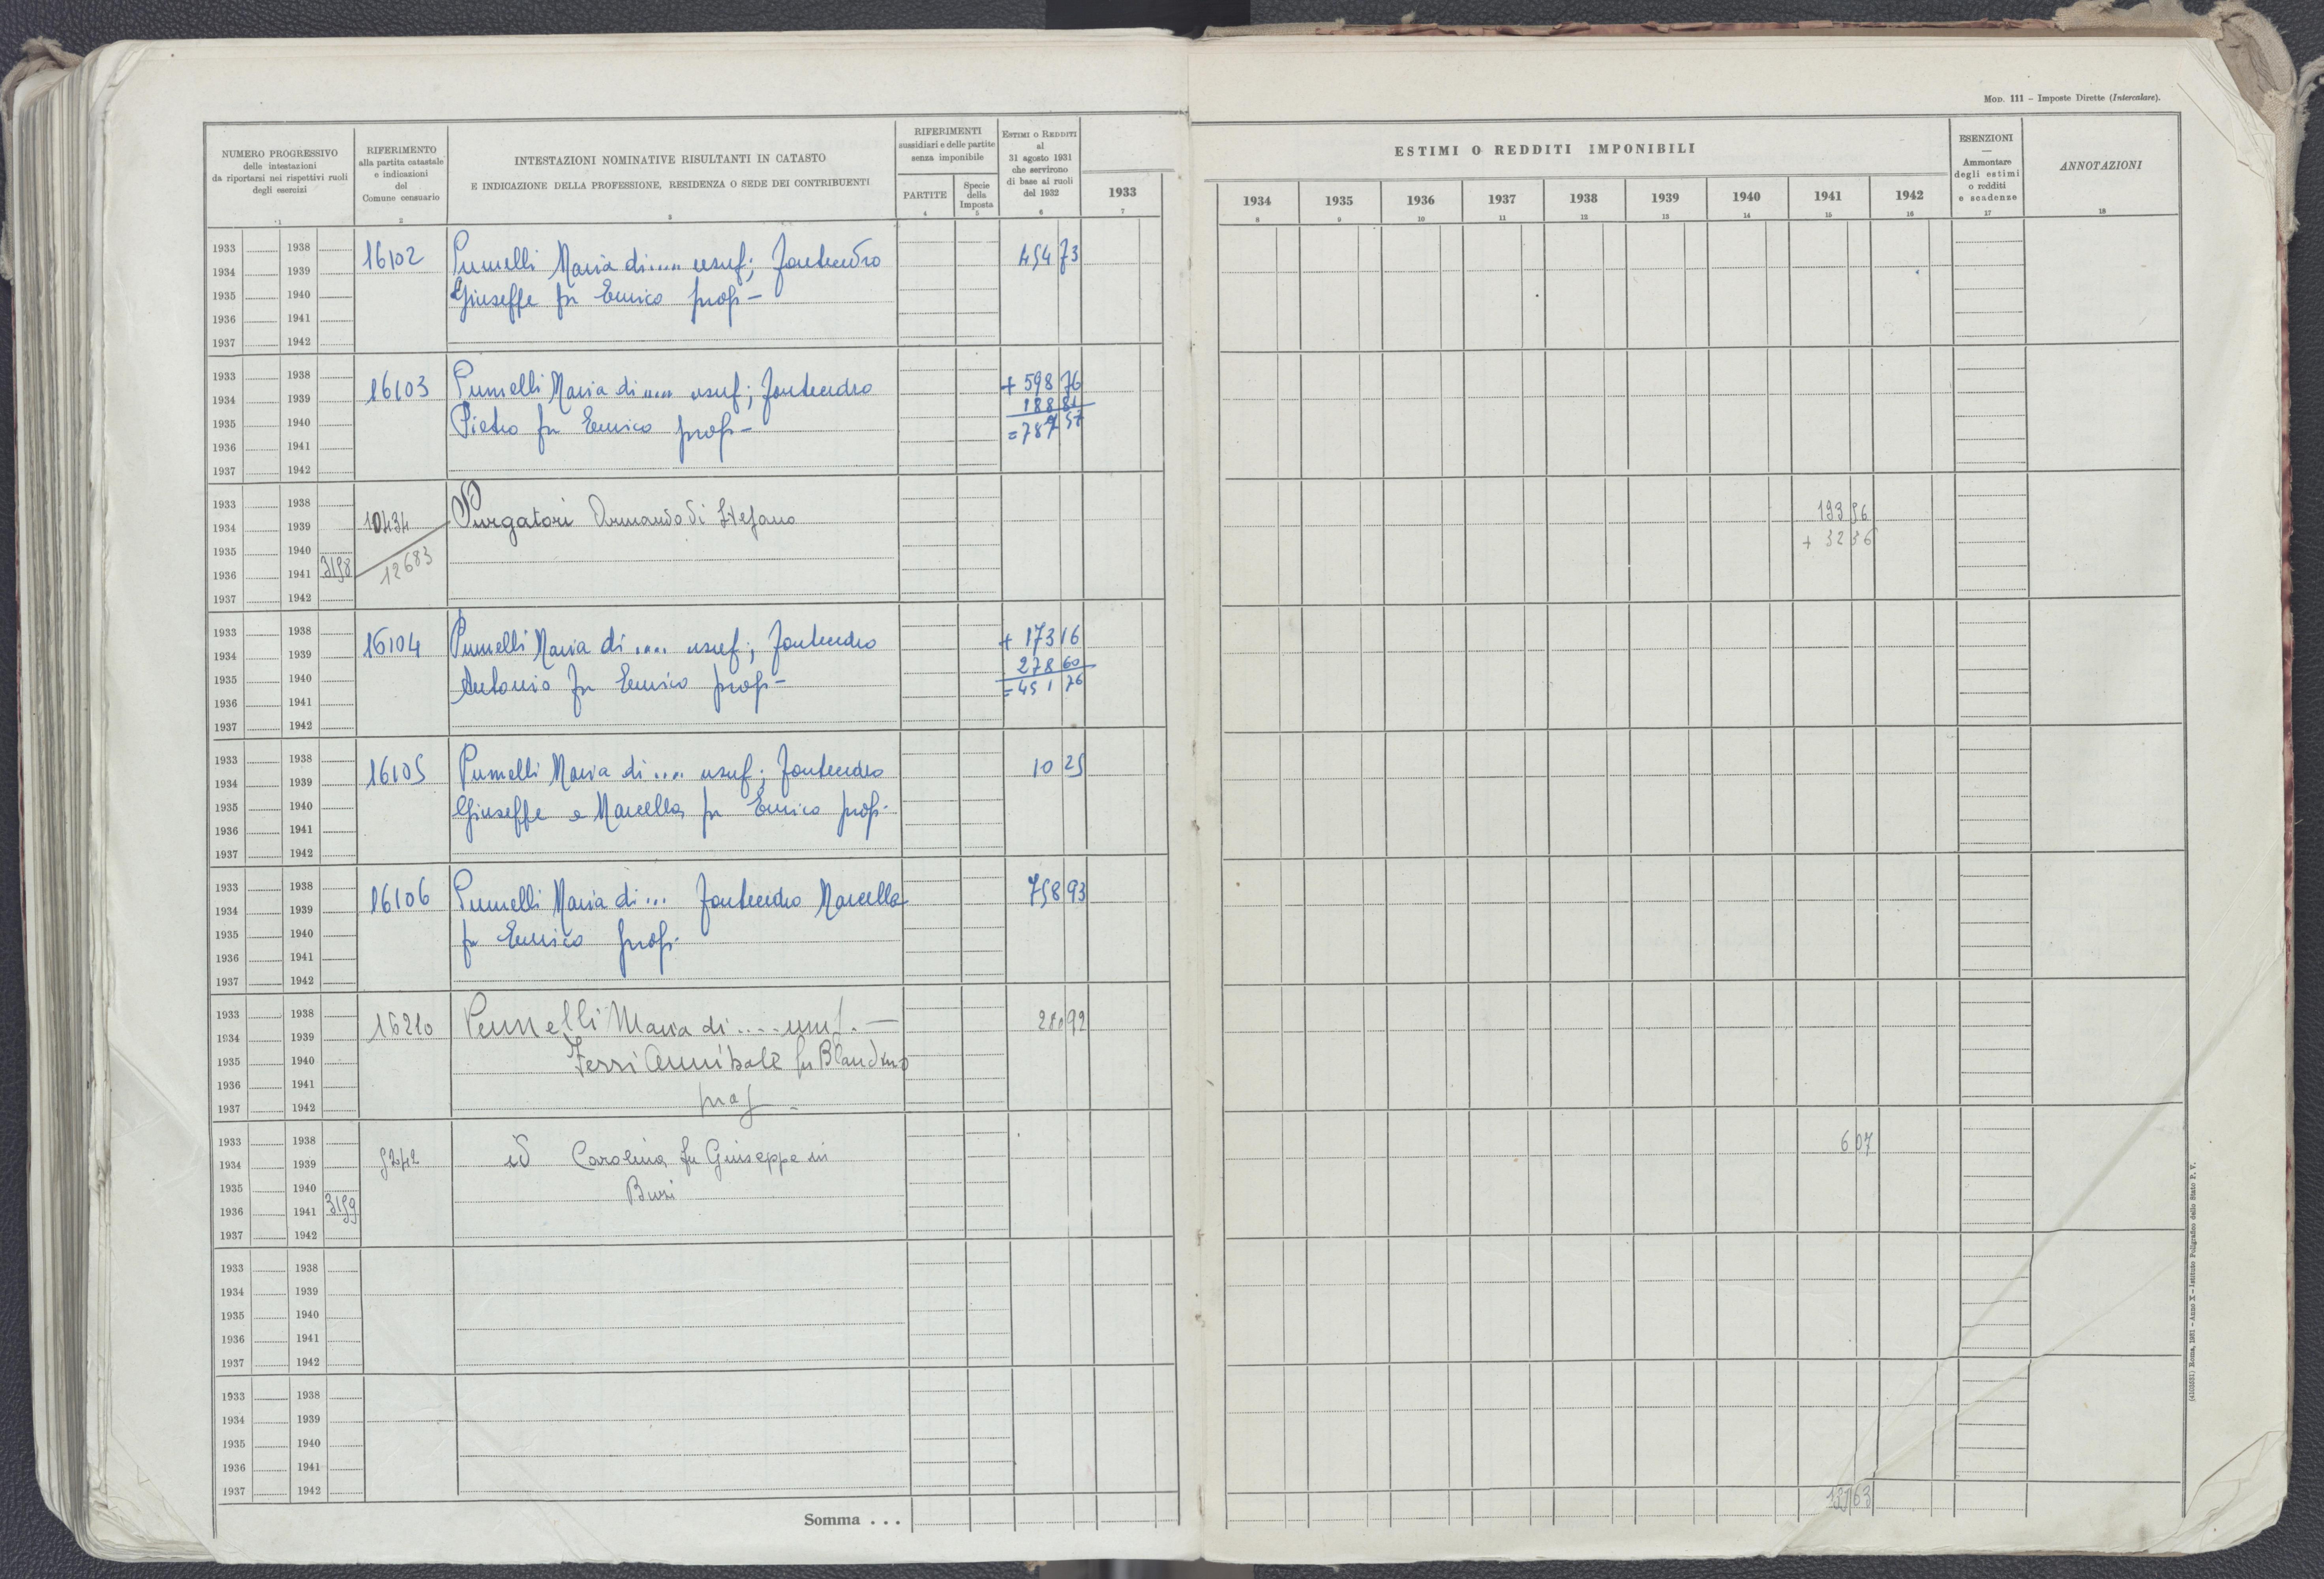 Mod. 111 – Imposte Dirette (Intercalare).
NUMERO PROGRESSIVO
delle intestazioni
da riportarsi nei rispettivi ruoli
degli esercizi
1
RIFERIMENTO
alla partita catastale
e indicazioni
del
Comune censuario
2
INTESTAZIONI NOMINATIVE RISULTANTI IN CATASTO
E INDICAZIONE DELLA PROFESSIONE, RESIDENZA O SEDE DEI CONTRIBUENTI
3
RIFERIMENTI
sussidiari e delle partite
senza imponibile
PARTITE
4
Specie
della
Imposta
5
Estimi o Redditi
al
31 agosto 1931
che servirono
di base ai ruoli
del 1932
6
1933
7
ESTIMI O REDDITI IMPONIBILI
1934 1935 1936 1937 1938 1939 1940 1941 1942
8 9 10 11 12 13 14 15 16
ESENZIONI
—
Ammontare
degli estimi
o redditi
e scadenze
17
ANNOTAZIONI
18
1933 1938
1934 1939
1935 1940
1936 1941
1937 1942
16102 Pumelli Maria di .... usuf; 454 73
Giuseppe fu Enrico prop –
1933 1938
1934 1939
1935 1940
1936 1941
1937 1942
16103 Pumelli Maria di .... usuf; + 598 76
188 81
Pietro fu Enrico prop – = 787 57
1933 1938
1934 1939
1935 1940
1936 1941 3198
1937 1942
10434 Purgatori Armando di Stefano
12683
+ 32 36
1933 1938
1934 1939
1935 1940
1936 1941
1937 1942
16104 Pumelli Maria di .... usuf; + 173 16
278 60
Antonio fu Enrico prop – = 451 76
1933 1938
1934 1939
1935 1940
1936 1941
1937 1942
16105 Pumelli Maria di .... usuf; 10 25
Giuseppe e Marcella fu Enrico prop.
1933 1938
1934 1939
1935 1940
1936 1941
1937 1942
16106 Pumelli Maria di ... Marcella 758 93
fu Enrico prop.
1933 1938
1934 1939
1935 1940
1936 1941
1937 1942
16210 Maria di .... usuf. —
Annibale fu Blandino
prop –
1933 1938
1934 1939
1935 1940
1936 1941 3199
1937 1942
9242 id Carolina fu Giuseppe in 6 07
1933 1938
1934 1939
1935 1940
1936 1941
1937 1942
1933 1938
1934 1939
1935 1940
1936 1941
1937 1942
Somma . . .
(4103531) Roma, 1931 – Anno X – Istituto Poligrafico dello Stato P. V.